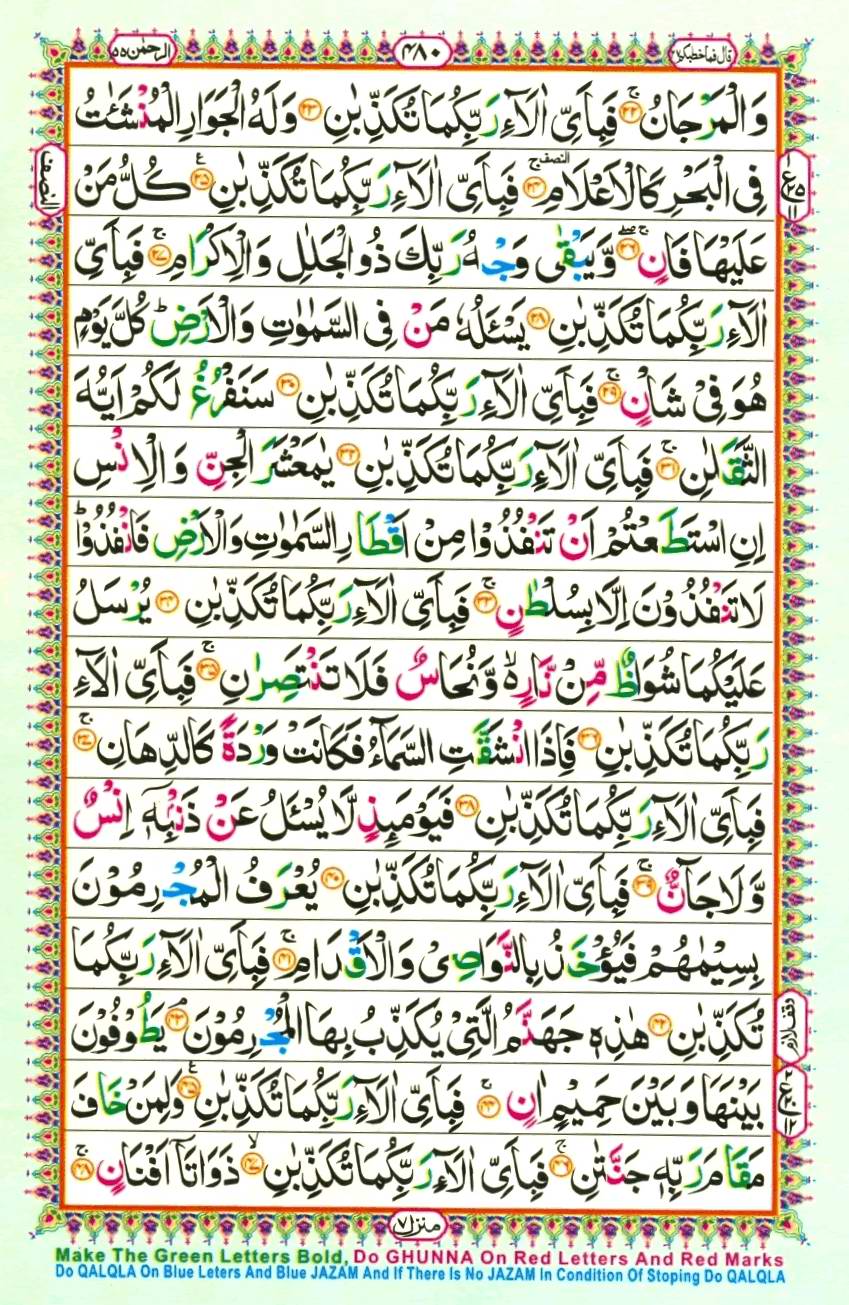 قال فما خطبکم ٢٧
٤٨٠
الرحمٰن ٥٥
وَالْمَرْجَانُ ﴿٢٢﴾ فَبِاَيِّ اٰلَآءِ رَبِّكُمَا تُكَذِّبٰنِ ﴿٢٣﴾ وَلَهُ الْجَوَارِ الْمُنْشَئٰتُ
فِي الْبَحْرِ كَالْاَعْلَامِ ﴿٢٤﴾ فَبِاَيِّ اٰلَآءِ رَبِّكُمَا تُكَذِّبٰنِ ﴿٢٥﴾ كُلُّ مَنْ
النصف
عَلَيْهَا فَانٍ ﴿٢٦﴾ وَّيَبْقٰى وَجْهُ رَبِّكَ ذُو الْجَلٰلِ وَالْاِكْرَامِ ﴿٢٧﴾ فَبِاَيِّ
اٰلَآءِ رَبِّكُمَا تُكَذِّبٰنِ ﴿٢٨﴾ يَسْئَلُهٗ مَنْ فِي السَّمٰوٰتِ وَالْاَرْضِ ؕ كُلَّ يَوْمٍ
هُوَ فِيْ شَاْنٍ ﴿٢٩﴾ فَبِاَيِّ اٰلَآءِ رَبِّكُمَا تُكَذِّبٰنِ ﴿٣٠﴾ سَنَفْرُغُ لَكُمْ اَيُّهَ
الثَّقَلٰنِ ﴿٣١﴾ فَبِاَيِّ اٰلَآءِ رَبِّكُمَا تُكَذِّبٰنِ ﴿٣٢﴾ يٰمَعْشَرَ الْجِنِّ وَالْاِنْسِ
اِنِ اسْتَطَعْتُمْ اَنْ تَنْفُذُوْا مِنْ اَقْطَارِ السَّمٰوٰتِ وَالْاَرْضِ فَانْفُذُوْا ؕ
لَا تَنْفُذُوْنَ اِلَّا بِسُلْطٰنٍ ﴿٣٣﴾ فَبِاَيِّ اٰلَآءِ رَبِّكُمَا تُكَذِّبٰنِ ﴿٣٤﴾ يُرْسَلُ
عَلَيْكُمَا شُوَاظٌ مِّنْ نَّارٍ ۙ وَّنُحَاسٌ فَلَا تَنْتَصِرٰنِ ﴿٣٥﴾ فَبِاَيِّ اٰلَآءِ
رَبِّكُمَا تُكَذِّبٰنِ ﴿٣٦﴾ فَاِذَا انْشَقَّتِ السَّمَآءُ فَكَانَتْ وَرْدَةً كَالدِّهَانِ ﴿٣٧﴾
فَبِاَيِّ اٰلَآءِ رَبِّكُمَا تُكَذِّبٰنِ ﴿٣٨﴾ فَيَوْمَئِذٍ لَّا يُسْئَلُ عَنْ ذَنْۢبِهٖۤ اِنْسٌ
وَّلَا جَآنٌّ ﴿٣٩﴾ فَبِاَيِّ اٰلَآءِ رَبِّكُمَا تُكَذِّبٰنِ ﴿٤٠﴾ يُعْرَفُ الْمُجْرِمُوْنَ
بِسِيْمٰهُمْ فَيُؤْخَذُ بِالنَّوَاصِيْ وَالْاَقْدَامِ ﴿٤١﴾ فَبِاَيِّ اٰلَآءِ رَبِّكُمَا
تُكَذِّبٰنِ ﴿٤٢﴾ هٰذِهٖ جَهَنَّمُ الَّتِيْ يُكَذِّبُ بِهَا الْمُجْرِمُوْنَ ﴿٤٣﴾ يَطُوْفُوْنَ
وقف لازم
بَيْنَهَا وَبَيْنَ حَمِيْمٍ اٰنٍ ﴿٤٤﴾ فَبِاَيِّ اٰلَآءِ رَبِّكُمَا تُكَذِّبٰنِ ﴿٤٥﴾ وَلِمَنْ خَافَ
مَقَامَ رَبِّهٖ جَنَّتٰنِ ﴿٤٦﴾ فَبِاَيِّ اٰلَآءِ رَبِّكُمَا تُكَذِّبٰنِ ﴿٤٧﴾ ذَوَاتَاۤ اَفْنَانٍ ﴿٤٨﴾
منزل ٧
Make The Green Letters Bold, Do GHUNNA On Red Letters And Red Marks
Do QALQLA On Blue Leters And Blue JAZAM And If There Is No JAZAM In Condition Of Stoping Do QALQLA